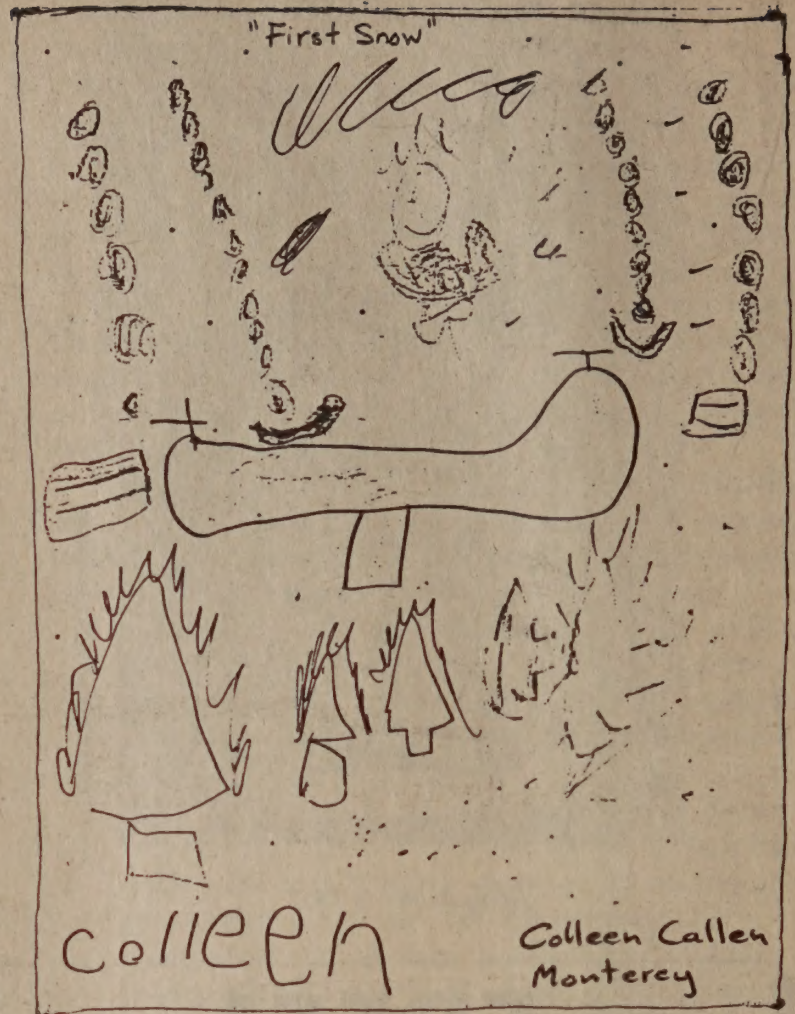 "First Snow"
Colleen
Colleen Callen
Monterey